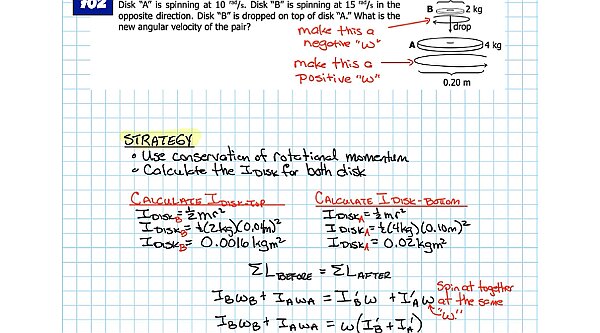 102
Disk "A" is spinning at 10 rad/s. Disk "B" is spinning at 15 rad/s in the
opposite direction. Disk "B" is dropped on top of disk "A." What is the
new angular velocity of the pair?
B 2 kg
drop
make this a
negative "ω"
A 4 kg
make this a
positive "ω"
0.20 m
STRATEGY
• Use conservation of rotational momentum
• Calculate the I DISK for both disk
CALCULATE I DISK-TOP
I DISK B = ½mr²
I DISK B = ½(2kg)(0.04m)²
I DISK B = 0.0016 kgm²
CALCULATE I DISK-BOTTOM
I DISK A = ½mr²
I DISK A = ½(4kg)(0.10m)²
I DISK A = 0.02kgm²
ΣL BEFORE = ΣL AFTER
I_Bω_B + I_Aω_A = I'_Bω + I'_Aω
Spin at together
at the same
"ω"
I_Bω_B + I_Aω_A = ω(I'_B + I'_A)